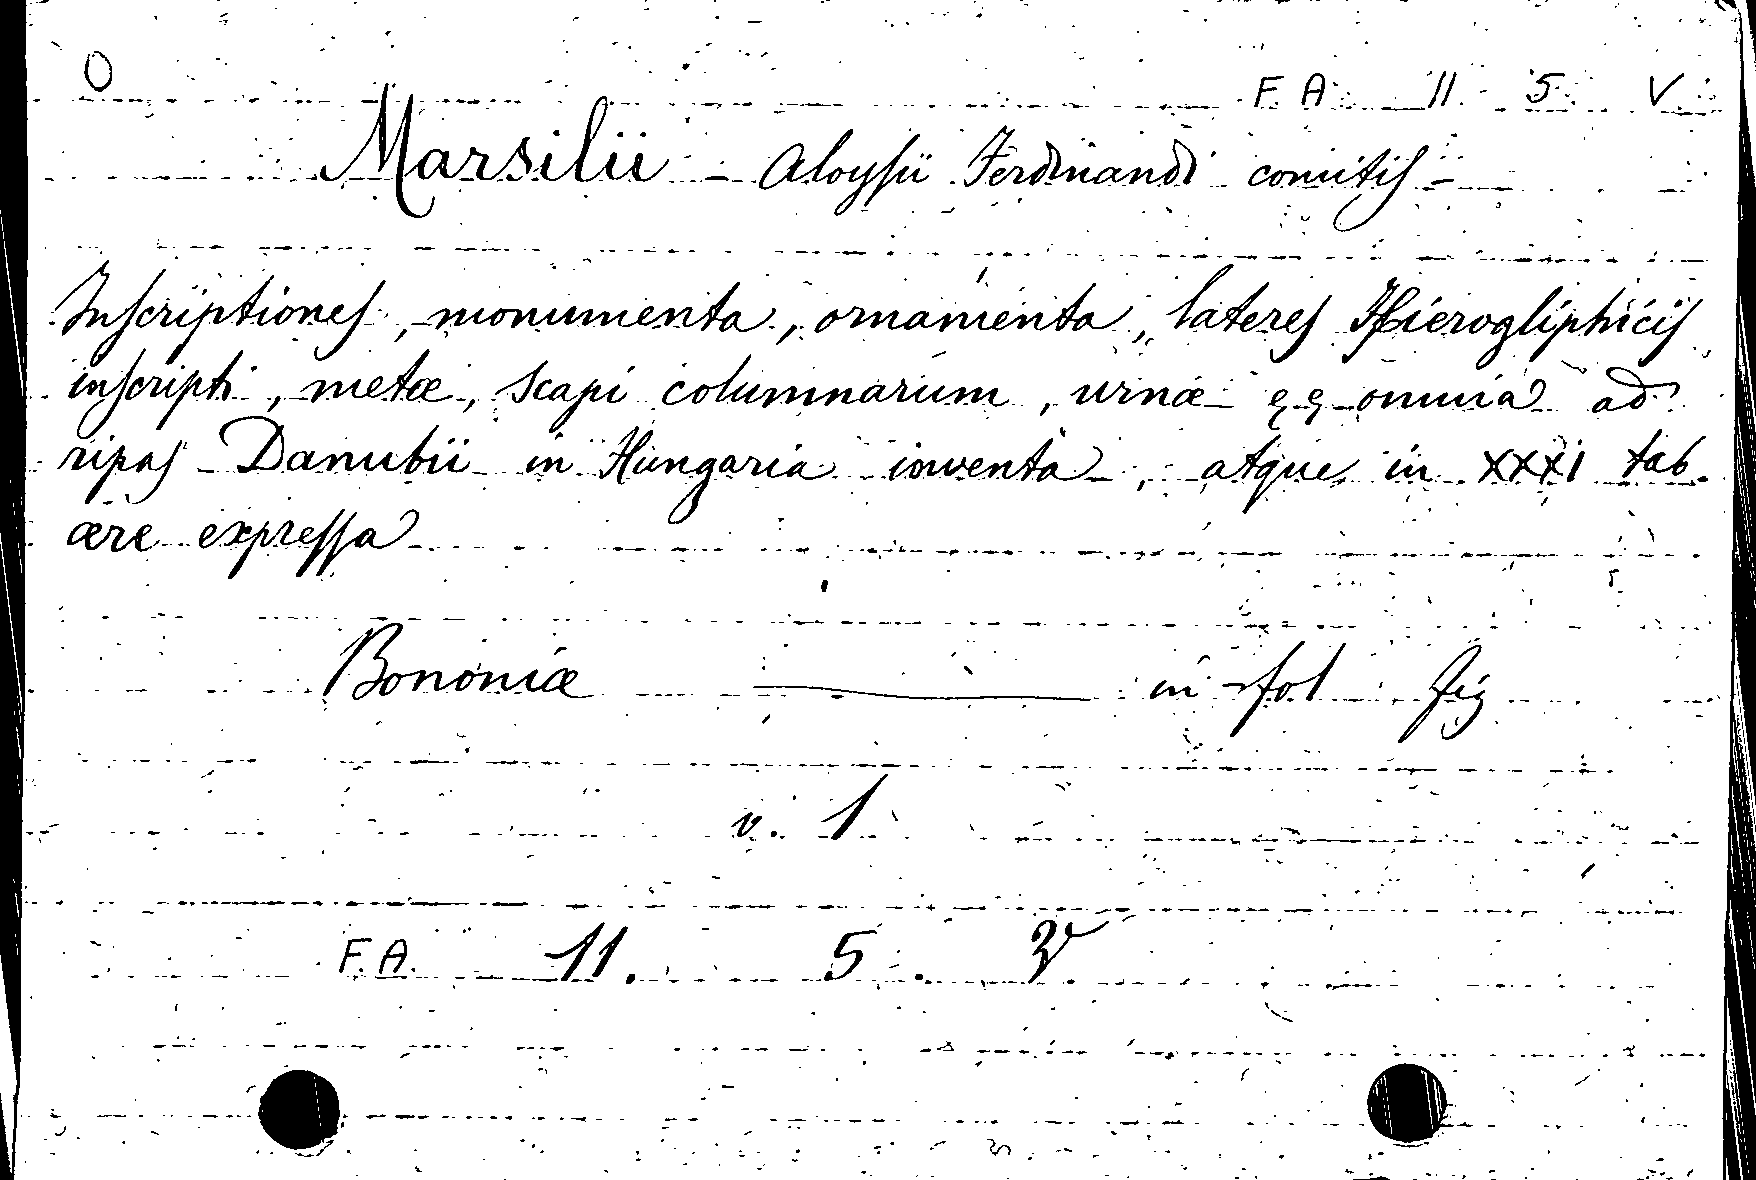 O
F. A. 11. 5. V.
Marsilii - Aloysii Ferdinandi comitis -
Inscriptiones, monumenta, ornamenta, lateres Hierogliphicis
inscripti, metæ, scapi columnarum, urnæ & & omnia ad
ripas Danubii in Hungaria inventa, atque in XXXI tab.
ære expressa
Bononiæ — in fol fig
v. 1
F. A. 11. 5.